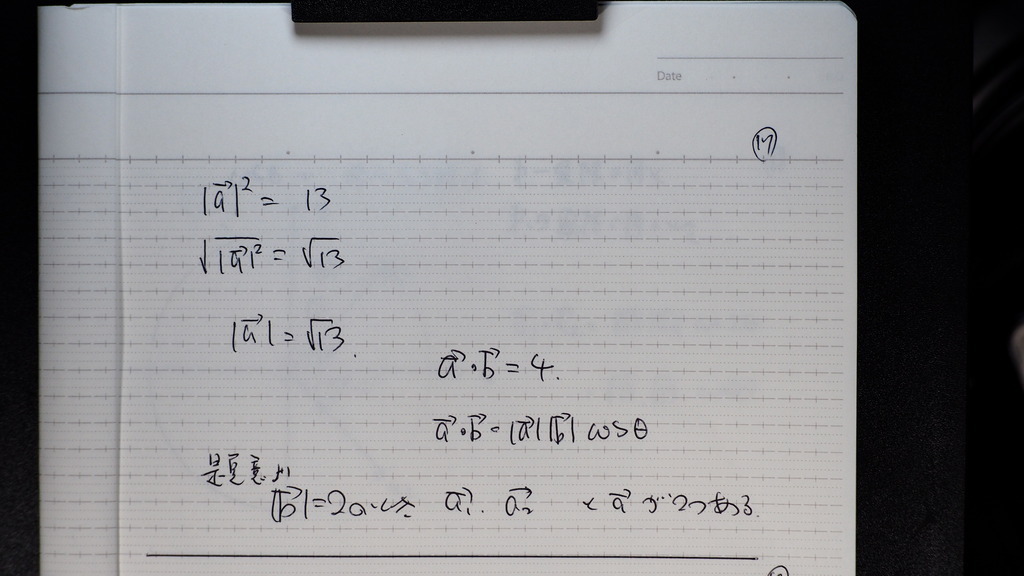 Date
⑰
|a⃗|² = 13
√|a⃗|² = √13
|a⃗| = √13.
a⃗・b⃗ = 4.
a⃗・b⃗ = |a⃗||b⃗| cosθ
題意より
|b⃗|=2のとき a⃗₁. a⃗₂ と a⃗ が2つある.